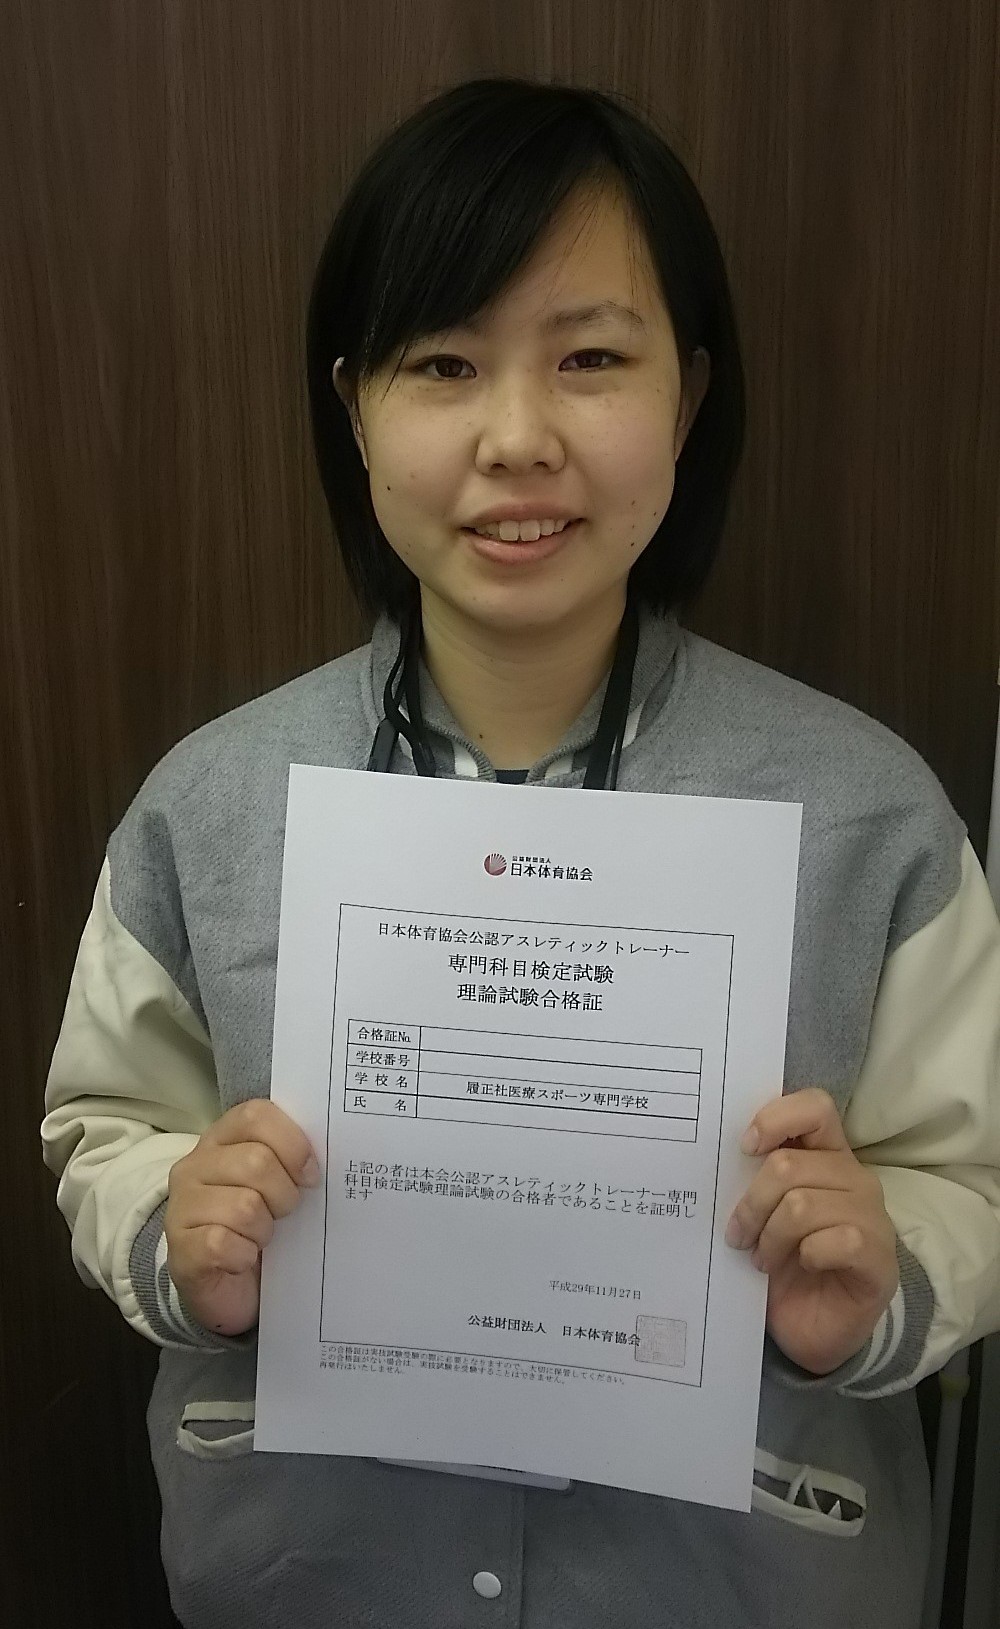 公益財団法人
日本体育協会
日本体育協会公認アスレティックトレーナー
専門科目検定試験
理論試験合格証
合格証No.
学校番号
学校名 履正社医療スポーツ専門学校
氏名
上記の者は本会公認アスレティックトレーナー専門
科目検定試験理論試験の合格者であることを証明し
ます
平成29年11月27日
公益財団法人 日本体育協会
この合格証は実技試験受験の際に必要となりますので、大切に保管してください。
この合格証がない場合は、実技試験を受験することはできません。
再発行はいたしません。